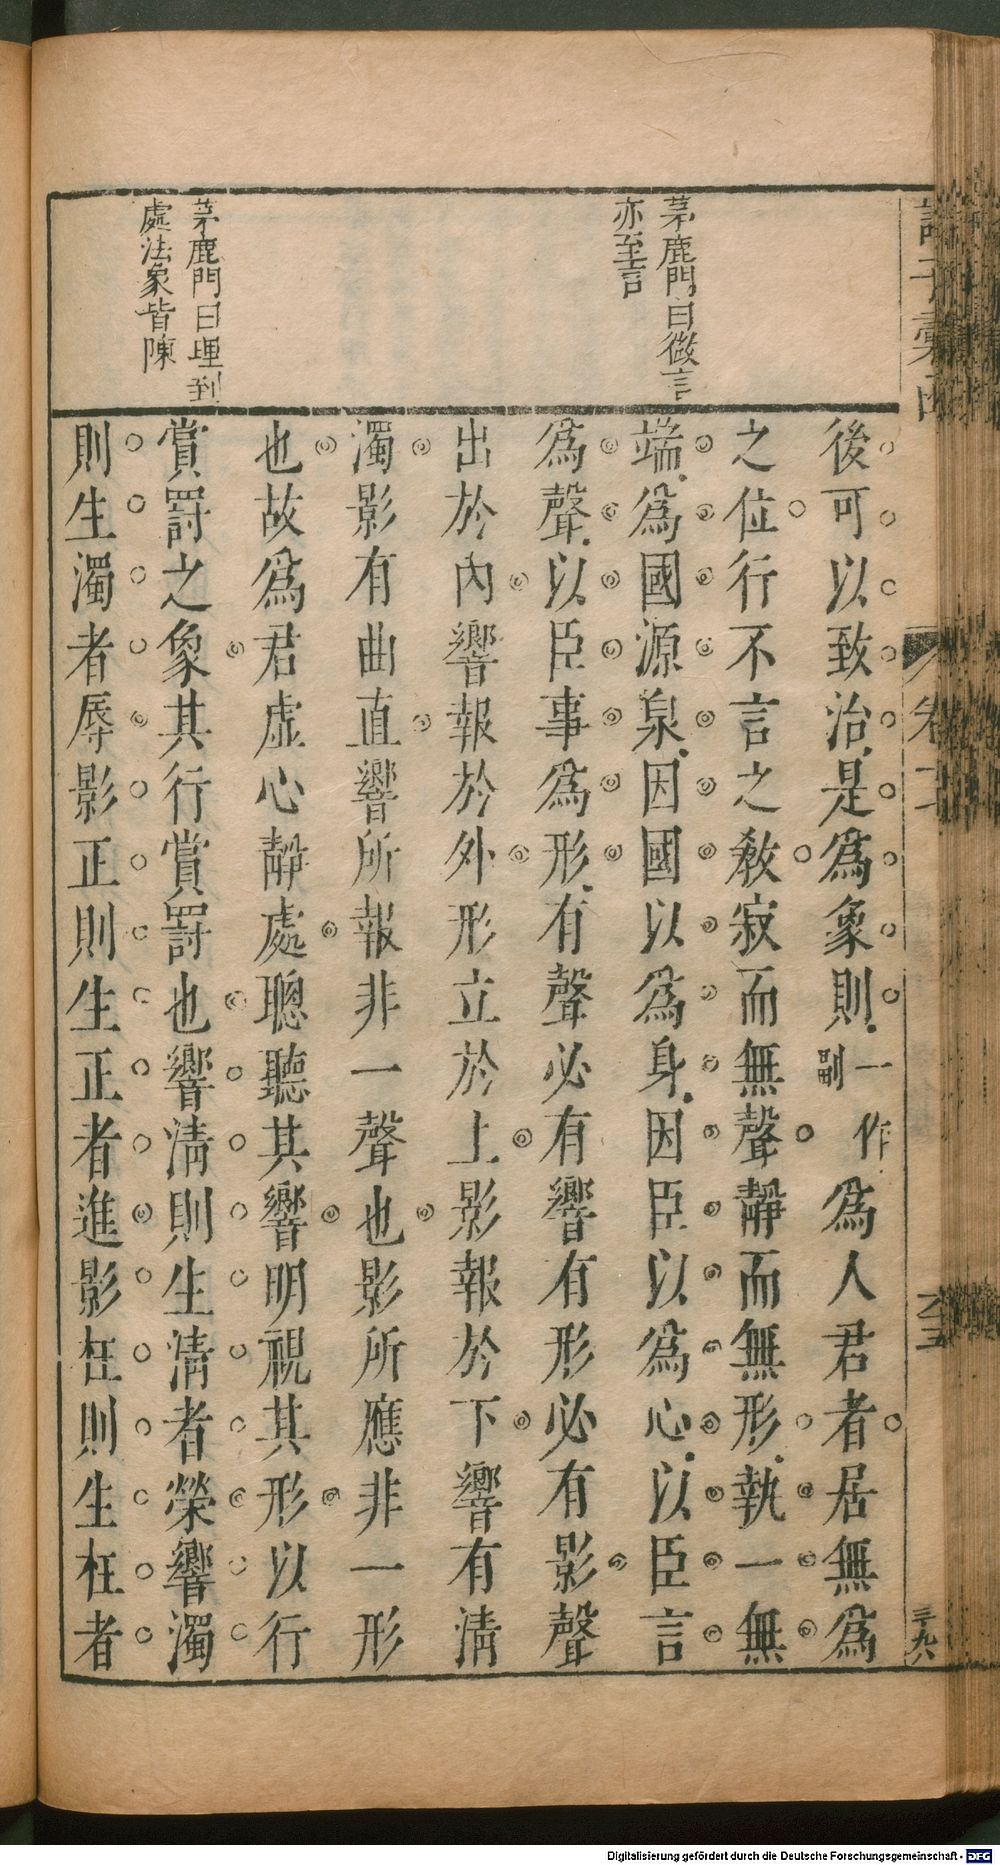 茅鹿門曰微言
亦至言
茅鹿門曰理到
處法象皆陳
後可以致治是爲象則一作副爲人君者居無爲
之位行不言之教寂而無聲靜而無形執一無
端爲國源泉因國以爲身因臣以爲心以臣言
爲聲以臣事爲形有聲必有響有形必有影聲
出於內響報於外形立於上影報於下響有清
濁影有曲直響所報非一聲也影所應非一形
也故爲君虛心靜處聰聽其響明視其形以行
賞罰之象其行賞罰也響清則生清者榮響濁
則生濁者辱影正則生正者進影枉則生枉者
卷二
六五
Digitalisierung gefördert durch die Deutsche Forschungsgemeinschaft - DFG